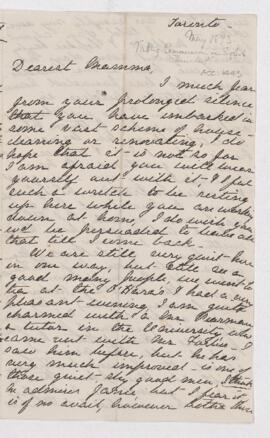 Toronto -
May 1893
Dearest Mamma,
I much fear
from your prolonged silence
that you have embarked in
some vast scheme of house-
cleaning or renovating, I do
hope that it is not so for
I am afraid you will wear
yourself out with it - I feel
such a wretch to be resting
up here while you are working
down at home, I do wish you
wd be persuaded to leave all
that till I come back -
We are still very quiet here
in one way, but still see a
good many people we went to
tea at the I had a very
pleasant evening I am quite
charmed with a Mr
a tutor in the University who
came out with Mr I
saw him before, but he has
very much improved - is one of
those quiet - shy good men, I think
he admires Janie but I fear it
is of no avail, however Lotha